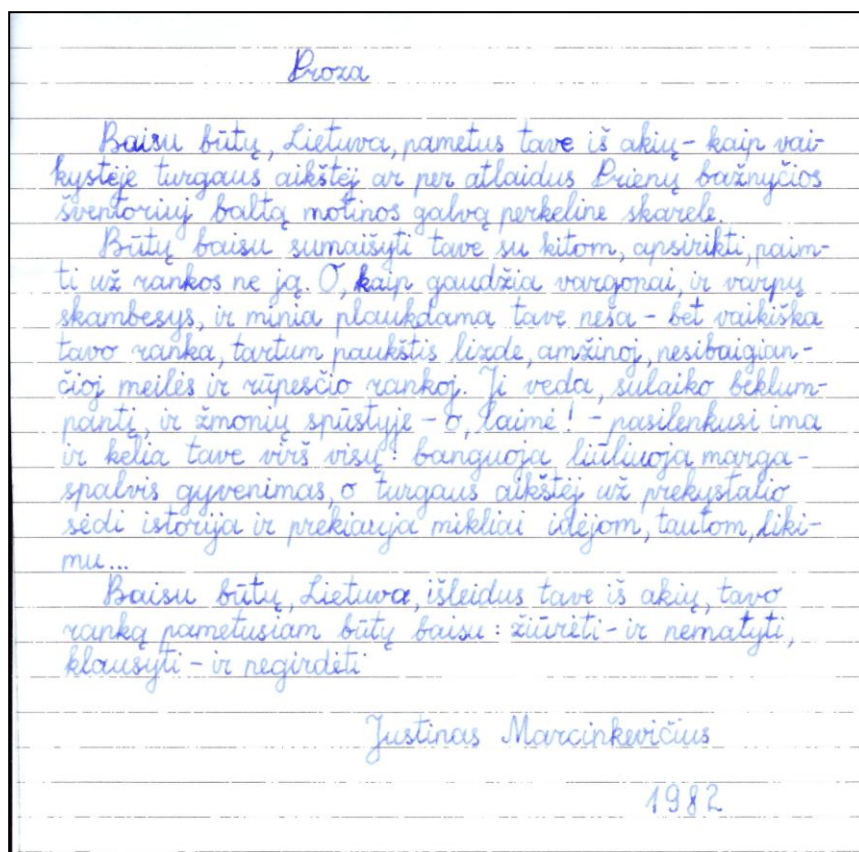 Proza
Baisu būtų, Lietuva, pametus tave iš akių - kaip vai-
kystėje turgaus aikštėj ar per atlaidus Prienų bažnyčios
šventoriuj baltą motinos galvą perkeline skarele.
Būtų baisu sumaišyti tave su kitom, apsirikti, paim-
ti už rankos ne ją. O, kaip gaudžia vargonai, ir varpų
skambesys, ir minia plaukdama tave neša - bet vaikiška
tavo ranka, tartum paukštis lizde, amžinoj, nesibaigian-
čioj meilės ir rūpesčio rankoj. Ji veda, sulaiko beklum-
pantį, ir žmonių spūstyje - o, laimė! - pasilenkusi ima
ir kelia tave virš visų: banguoja liūliuoja marga-
spalvis gyvenimas, o turgaus aikštėj už prekystalio
sėdi istorija ir prekiauja mikliai idėjom, tautom, liki-
mu...
Baisu būtų, Lietuva, išleidus tave iš akių, tavo
ranką pametusiam būtų baisu: žiūrėti - ir nematyti,
klausyti - ir negirdėti
Justinas Marcinkevičius
1982